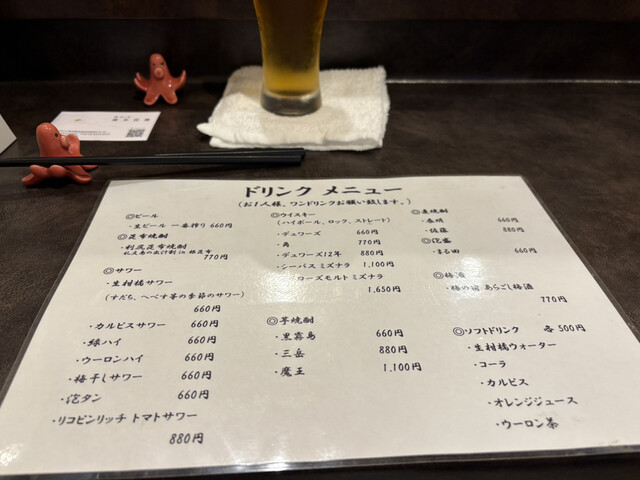 ドリンク メニュー
(お1人様、ワンドリンクお願い致します。)
◎ビール
・生ビール 一番搾り 660円
◎昆布焼酎
・利尻昆布焼酎
770円
◎サワー
・生柑橘サワー
(すだち、へべす等の季節のサワー)
660円
・カルピスサワー 660円
・緑ハイ 660円
・ウーロンハイ 660円
・梅干しサワー 660円
・泡タン 660円
・リコピンリッチ トマトサワー
880円
◎ウイスキー
(ハイボール、ロック、ストレート)
・デュワーズ 660円
・角 770円
・デュワーズ12年 880円
・シーバス ミズナラ 1,100円
ローズモルト ミズナラ
1,650円
◎芋焼酎
・黒霧島 660円
・三岳 880円
・魔王 1,100円
◎麦焼酎
660円
・佐藤 880円
◎泡盛
・まる田 660円
◎梅酒
・梅の宿 あらごし梅酒
770円
◎ソフトドリンク 各500円
・生柑橘ウォーター
・コーラ
・カルピス
・オレンジジュース
・ウーロン茶